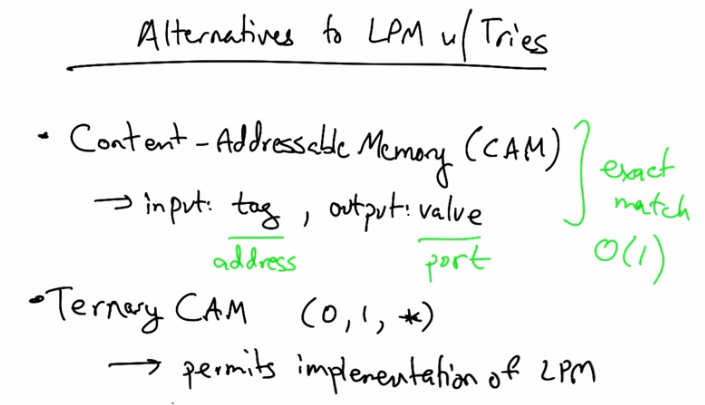 Alternatives to LPM w/ Tries
• Content-Addressable Memory (CAM)
→ input: tag, output: value
address port
exact
match
O(1)
• Ternary CAM (0, 1, *)
→ permits implementation of LPM